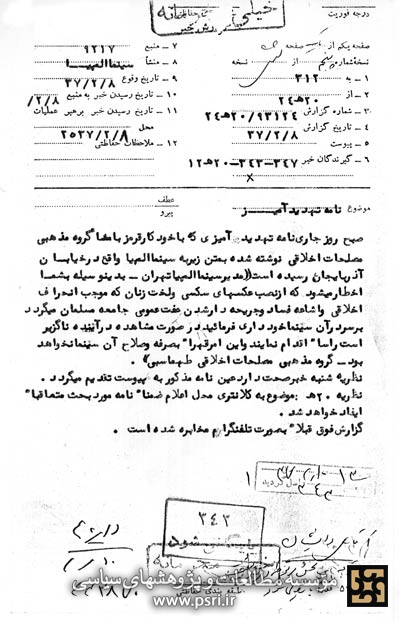 درجه فوریت
خیلی محرمانه
صفحه یکم از یک صفحه
نسخه شماره پنجم از نسخه
۱ - به ۳۱۲
۲ - از ۲۰ ه ۲۴
۳ - شماره گزارش ۲۰/۹۳۱۲۴ ه ۲۴
۴ - تاریخ گزارش ۳۷/۲/۸
۵ - پیوست
۶ - گیرندگان خبر ۳۴۷-۳۴۳-۲۰ ه ۱۲
x
۷ - منبع ۹۲۱۷
۸ - منشأ سینما المپیا
۹ - تاریخ وقوع ۳۷/۲/۸
۱۰ - تاریخ رسیدن خبر به منبع ۲/۸/
۱۱ - تاریخ رسیدن خبر برهبر عملیات
محل ۲۵۳۷/۲/۸
۱۲ - ملاحظات حفاظتی
موضوع نامه تهدید آمیز
عطف
پیرو
صبح روز جاری نامه تهدید آمیزی که با خودکار قرمز با امضا گروه مذهبی
مصلحات اخلاقی نوشته شده بمتن زیر به سینما المپیا واقع در خیابان
آذربایجان رسیده است ((مدیر سینما المپیا تهران - بدینوسیله بشما
اخطار میشود که از نصب عکسهای سکسی ولخت زنان که موجب انحراف
اخلاقی واشاعه فساد وجریحه دار شدن عفت عمومی جامعه مسلمان میگردد
برسر در آن سینما خودداری فرمائید در صورت مشاهده در آینده ناگزیر
است راسا" اقدام نمایند واین امر قهرا" بصرفه وصلاح آن سینما نخواهد
بود - گروه مذهبی مصلحات اخلاقی طهماسبی))
نظریه شنبه خبر صحت دارد عین نامه مذکور به پیوست تقدیم میگردد .
نظریه ۲۰ ه : موضوع به کلانتری محل اعلام ضمنا" نامه مورد بحث متعاقبا"
ایفاد خواهد شد .
گزارش فوق قبلا" بصورت تلفنگرام مخابره شده است .
۳۴۳
۳۴۳
موسسه مطالعات و پژوهشهای سیاسی
www.psri.ir
طبقه بندی حفاظتی